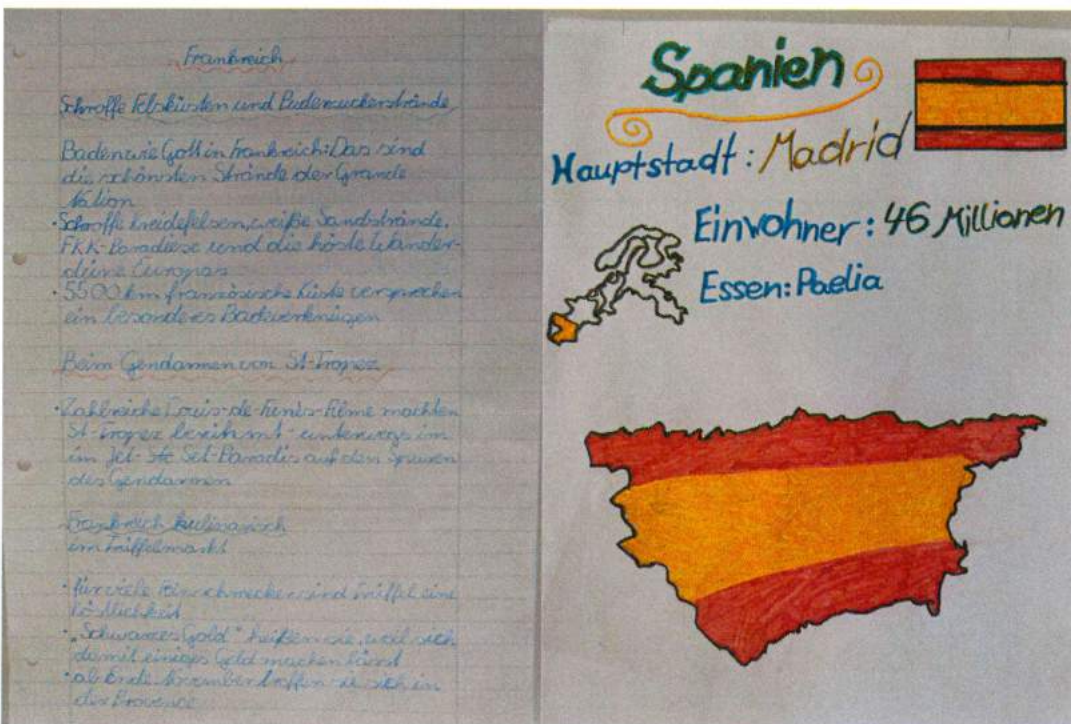 Frankreich
Schroffe Felsküsten und Puderzuckerstrände
Baden wie Gott in Frankreich: Das sind
die schönsten Strände der Grande
Nation
· Schroffe Kreidefelsen, weiße Sandstrände,
FKK-Paradiese und die höste Wander-
düne Europas
· 5500 km französische Küste versprechen
ein besonderes
Beim Gendarmen von St-Tropez
· Zahlreiche Louis-de-Funès-Filme machten
St-Tropez berühmt - unterwegs im
im Jet- Set-Paradis auf den Spuren
des Gendarmen
Frankreich kulinarisch
im Trüffelmarkt
· für viele sind Trüffel eine
Köstlichkeit
· „Schwarzes Gold" heißen sie, weil sich
damit einiges Geld machen lässt
· ab Ende November treffen sie sich in
der Provence
Spanien
Hauptstadt: Madrid
Einwohner: 46 Millionen
Essen: Paelia